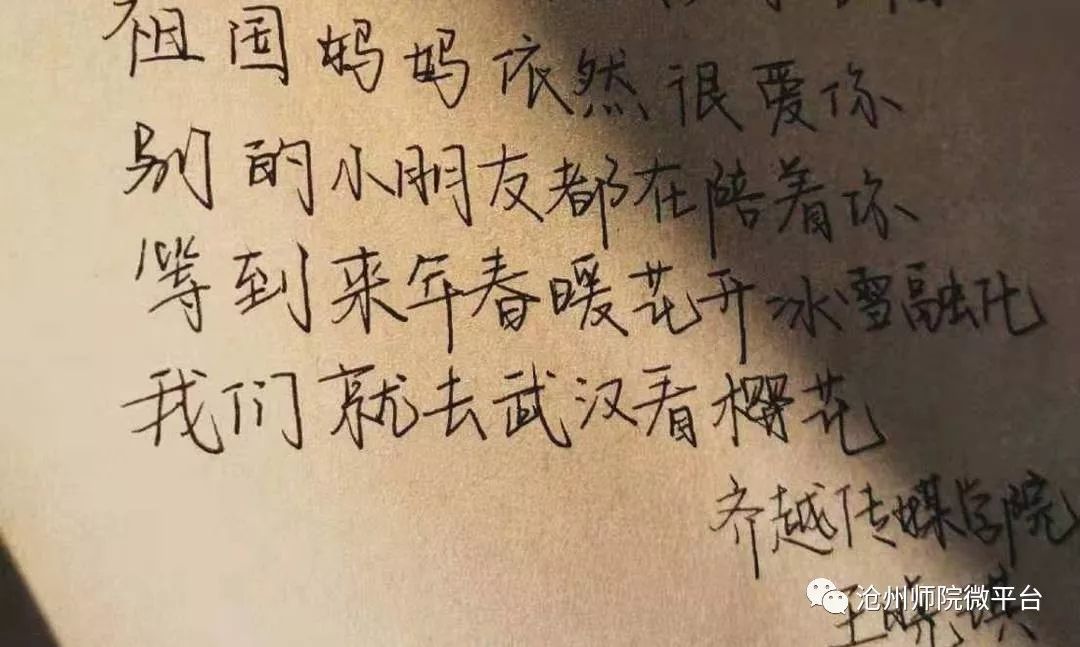 祖国妈妈依然很爱你
别的小朋友都在陪着你
等到来年春暖花开冰雪融化
我们就去武汉看樱花
齐越传媒学院
王晓琪
沧州师院微平台